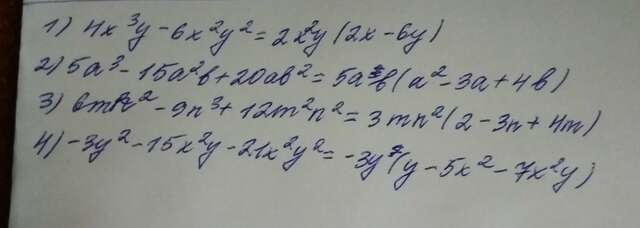 1) 4x³y - 6x²y² = 2x²y (2x - 6y)
2) 5a³ - 15a²b + 20ab² = 5ab (a² - 3a + 4b)
3) 6mn² - 9n³ + 12m²n² = 3mn² (2 - 3n + 4m)
4) -3y² - 15x²y - 21x²y² = -3y (y - 5x² - 7x²y)